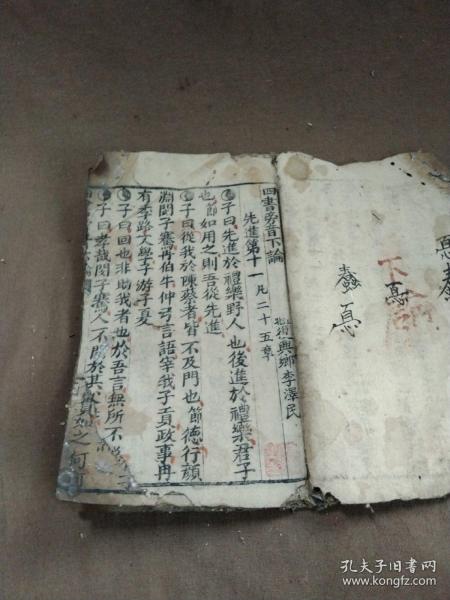 四書旁音下論
先進第十一 凡二十五章
典鄉李澤民
子曰先進於禮樂野人也後進於禮樂君子
也節如用之則吾從先進
子曰從我於陳蔡者皆不及門也節德行顏
淵閔子騫冉伯牛仲弓言語宰我子貢政事冉
有季路文學子游子夏
子曰回也非助我者也於吾言無所不
子曰孝哉閔子騫人不間於其
孔夫子旧书网
www.kongfz.com